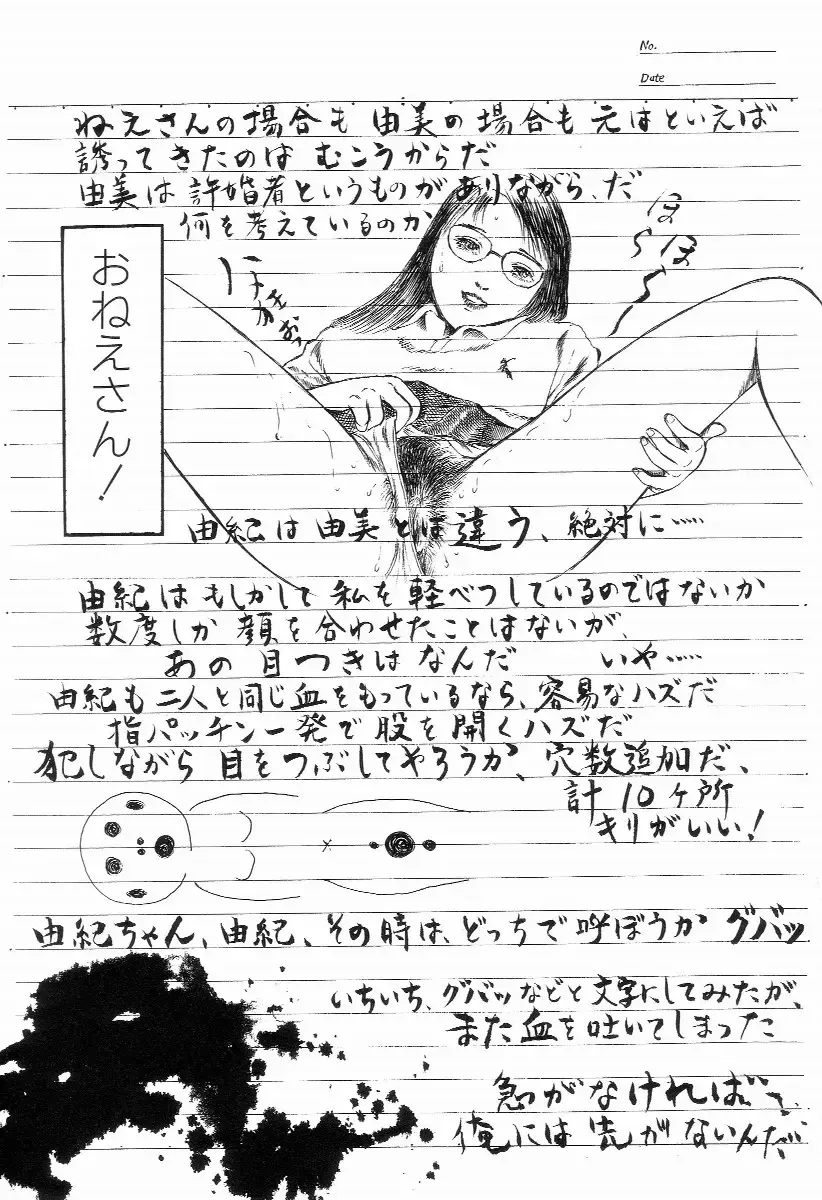 No.
Date
ねえさんの場合も 由美の場合も 元はといえば
誘ってきたのは むこうからだ
由美は許婚者というものがありながら、だ
何を考えているのか
おねえさん!
ほら
ほら
由紀は 由美とは違う、絶対に……
由紀は もしかして 私を 軽べつしているのではないか
数度しか 顔を 合わせたことはないが、
あの目つきは なんだ いや……
由紀も 二人と同じ血をもっているなら、容易なハズだ
指パッチン一発で 股を 開くハズだ
犯しながら 目を つぶしてやろうか、穴数追加だ、
計 10ヶ所
キリがいい!
由紀ちゃん、由紀、その時は、どっちで 呼ぼうか グバッ
いちいち、グバッなどと文字にしてみたが、
また血を吐いてしまった
急がなければ
俺には先がないんだ